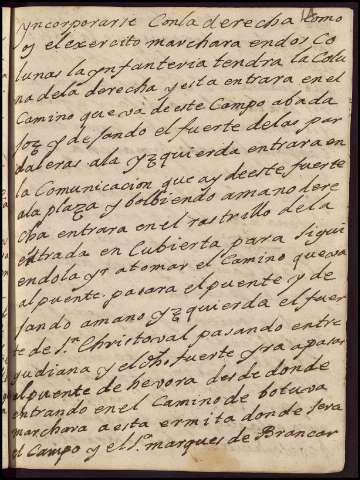 yncorporarse Conla derecha Como
oy el exercito marchara endos Co
lunas la ynfanteria tendra la Colu
na dela derecha y esta entrara en el
Camino que va de este Campo abada
joz y dejando el fuerte delas par
daleras ala yzquierda entrara en
la Comunicacion que ay de este fuerte
ala plaza y bolbiendo amano dere
cha entrara en el rastrillo dela
estrada en Cubierta para sigui
endola yr atomar el Camino que va
al puente, pasara el puente y de
jando amano yzquierda el fuer
te de Sn Christoval pasando entre
guadiana y el dho fuerte yra apasar
el puente de hevora desde donde
entrando en el Camino de botuva
marchara aesta ermita donde sera
el Campo y el Sr marques de Brancar